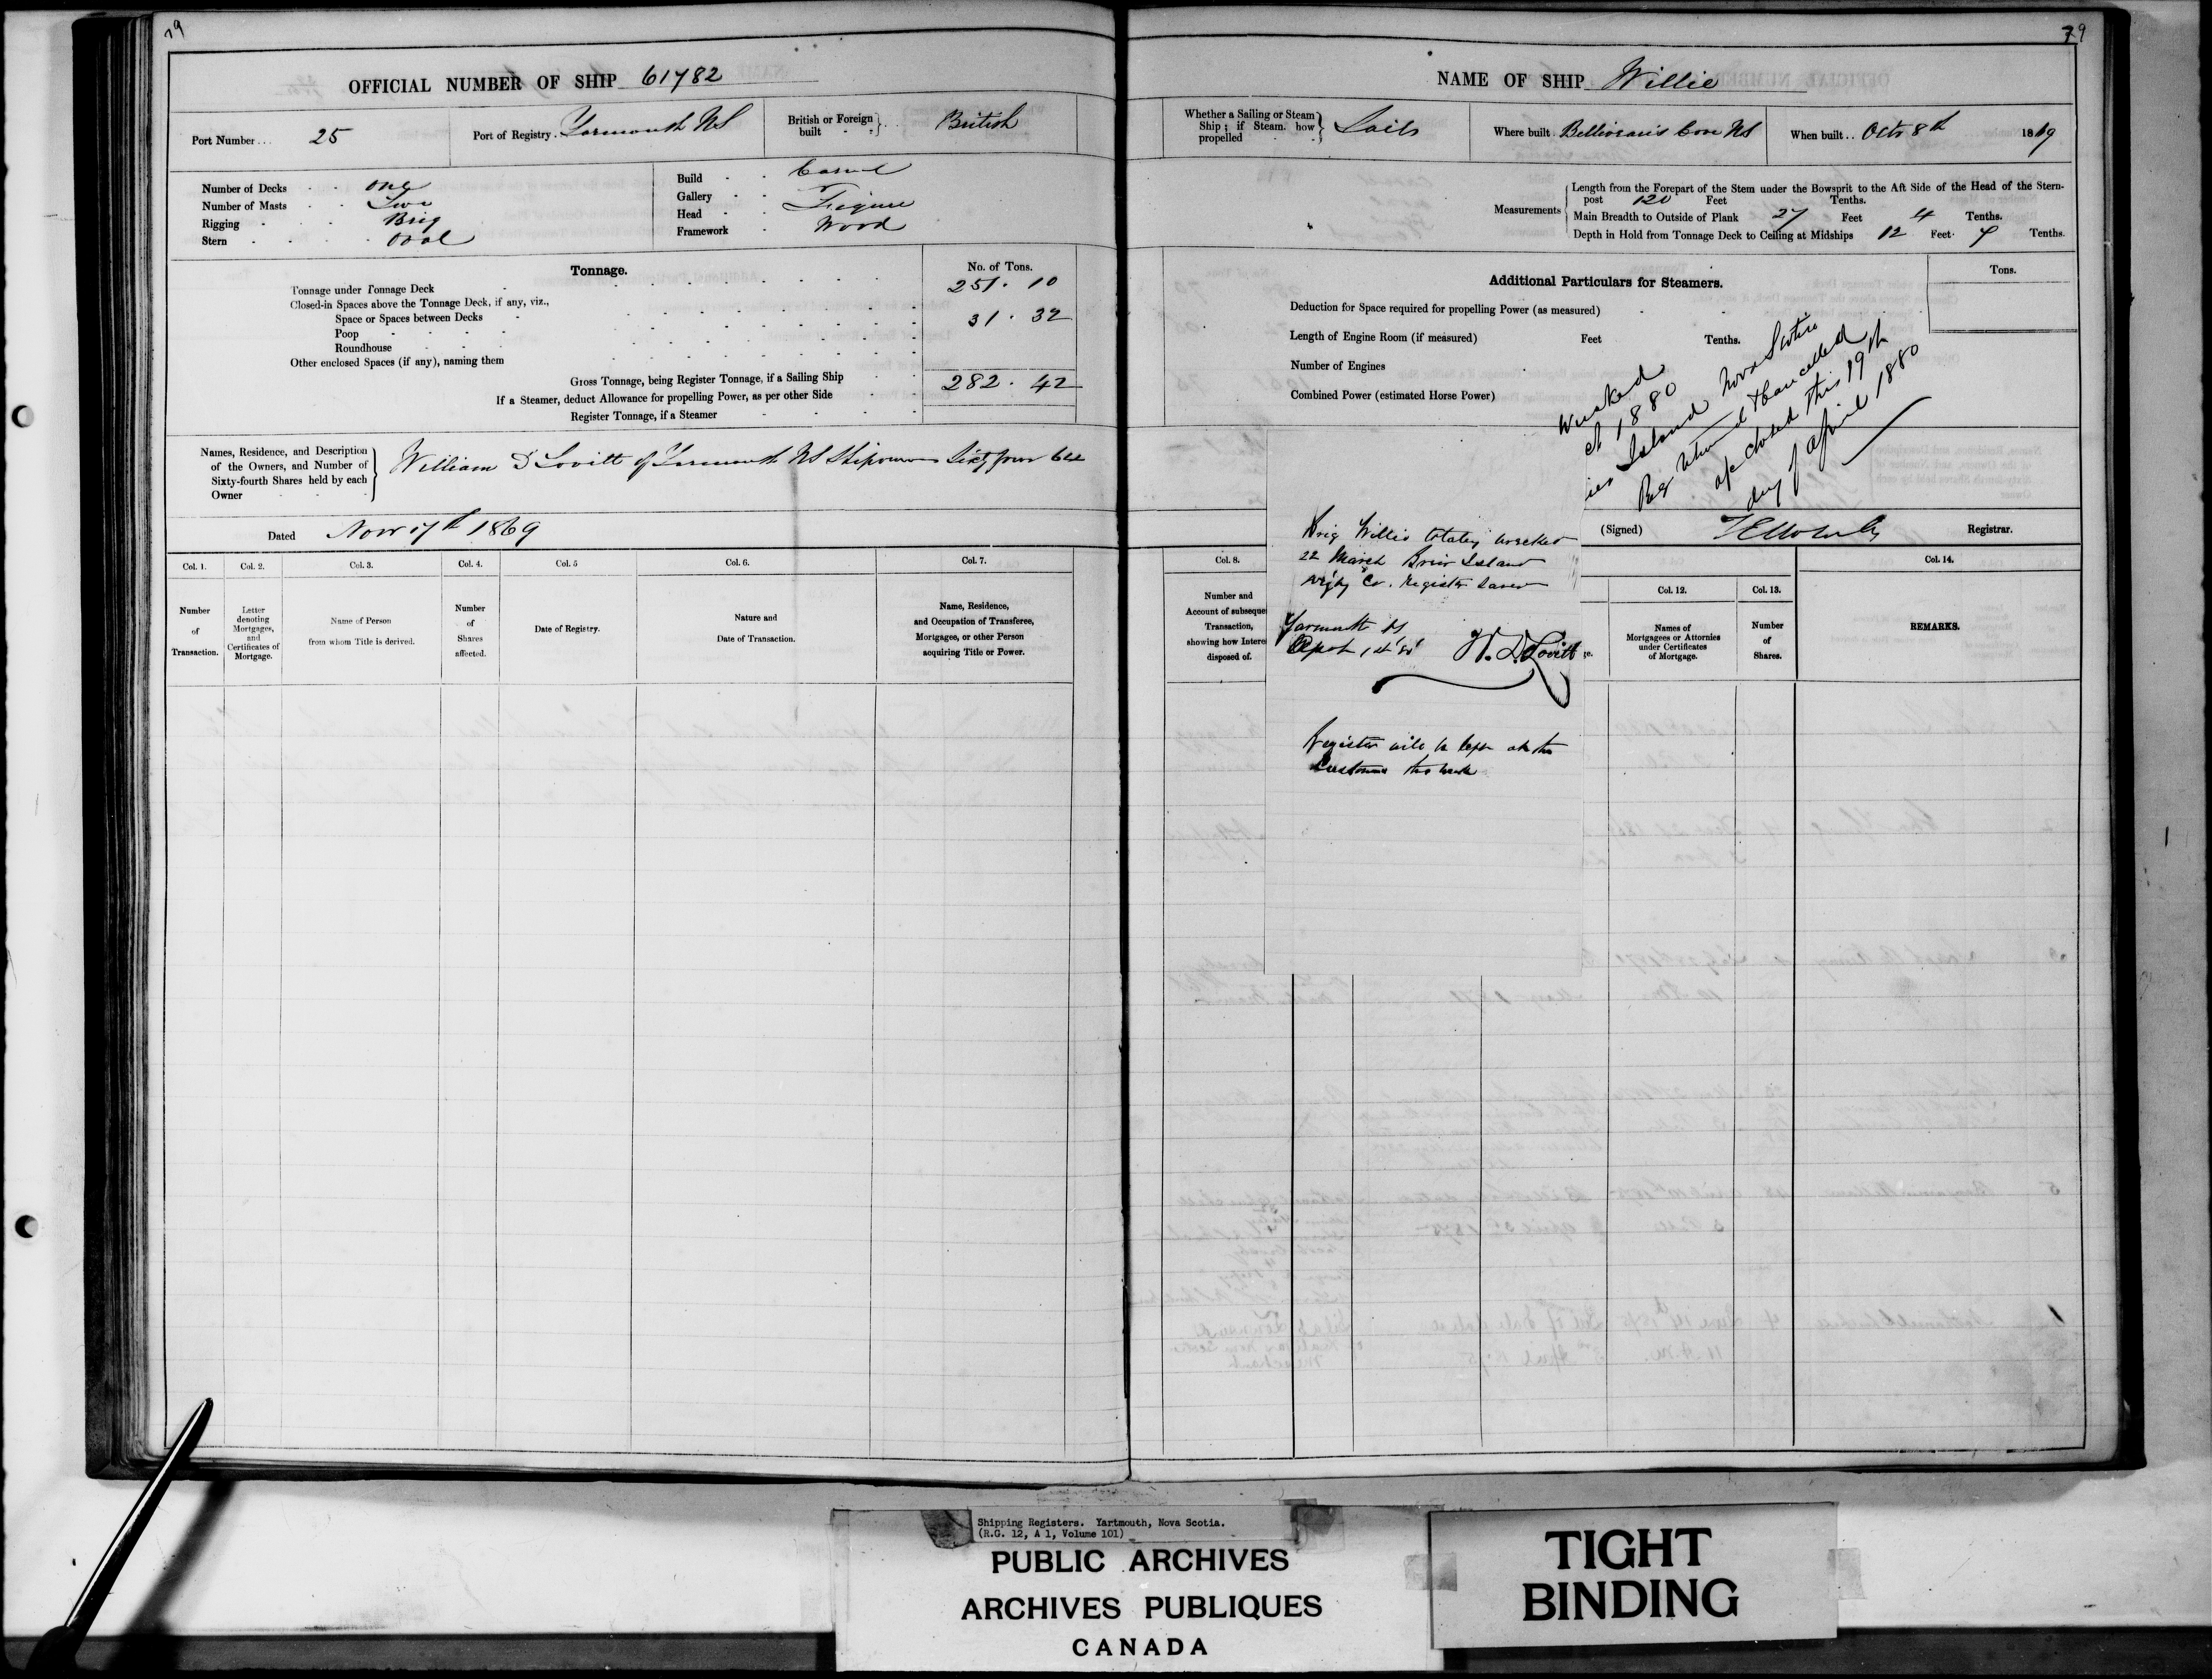 79
OFFICIAL NUMBER OF SHIP 61782
Port Number... 25
Port of Registry. Yarmouth NS
British or Foreign built British
Number of Decks One
Number of Masts Two
Rigging Brig
Stern Oval
Build Carvel
Gallery
Head Figure
Framework Wood
Tonnage.
No. of Tons.
Tonnage under Tonnage Deck 251. 10
Closed-in Spaces above the Tonnage Deck, if any, viz.,
Space or Spaces between Decks 31. 32
Poop
Roundhouse
Other enclosed Spaces (if any), naming them
Gross Tonnage, being Register Tonnage, if a Sailing Ship 282. 42
If a Steamer, deduct Allowance for propelling Power, as per other Side
Register Tonnage, if a Steamer
Names, Residence, and Description of the Owners, and Number of Sixty-fourth Shares held by each Owner
William D Lovitt of Yarmouth NS Shipowner Sixty four 64
Dated Nov 17th 1869
Col. 1. Col. 2. Col. 3. Col. 4. Col. 5 Col. 6. Col. 7.
Number of Transaction.
Letter denoting Mortgages, and Certificates of Mortgage.
Name of Person from whom Title is derived.
Number of Shares affected.
Date of Registry.
Nature and Date of Transaction.
Name, Residence, and Occupation of Transferee, Mortgagee, or other Person acquiring Title or Power.
79
NAME OF SHIP Willie
Whether a Sailing or Steam Ship; if Steam, how propelled Sails
Where built Belliveau's Cove NS
When built.. Octr 8th 1869
Measurements
Length from the Forepart of the Stem under the Bowsprit to the Aft Side of the Head of the Stern-
post 120 Feet Tenths.
Main Breadth to Outside of Plank 27 Feet 4 Tenths.
Depth in Hold from Tonnage Deck to Ceiling at Midships 12 Feet 7 Tenths.
Additional Particulars for Steamers.
Tons.
Deduction for Space required for propelling Power (as measured)
Length of Engine Room (if measured) Feet Tenths.
Number of Engines
Combined Power (estimated Horse Power)
Wrecked
1880
Island Nova Scotia
Reg returned & Cancelled
closed this 19th
day of April 1880
(Signed) Registrar.
Brig Willie totaly wrecked
22 March Brier Island
Digby Co. Register saved
Yarmouth NS
W. D. Lovitt
Register will be kept at the
Customs
Col. 8. Col. 12. Col. 13. Col. 14.
Number and
Account of subseque
Transaction,
showing how Intere
disposed of.
Names of Mortgagees or Attornies under Certificates of Mortgage.
Number of Shares.
REMARKS.
Shipping Registers. Yartmouth, Nova Scotia.
(R.G. 12, A 1, Volume 101)
PUBLIC ARCHIVES
ARCHIVES PUBLIQUES
CANADA
TIGHT
BINDING